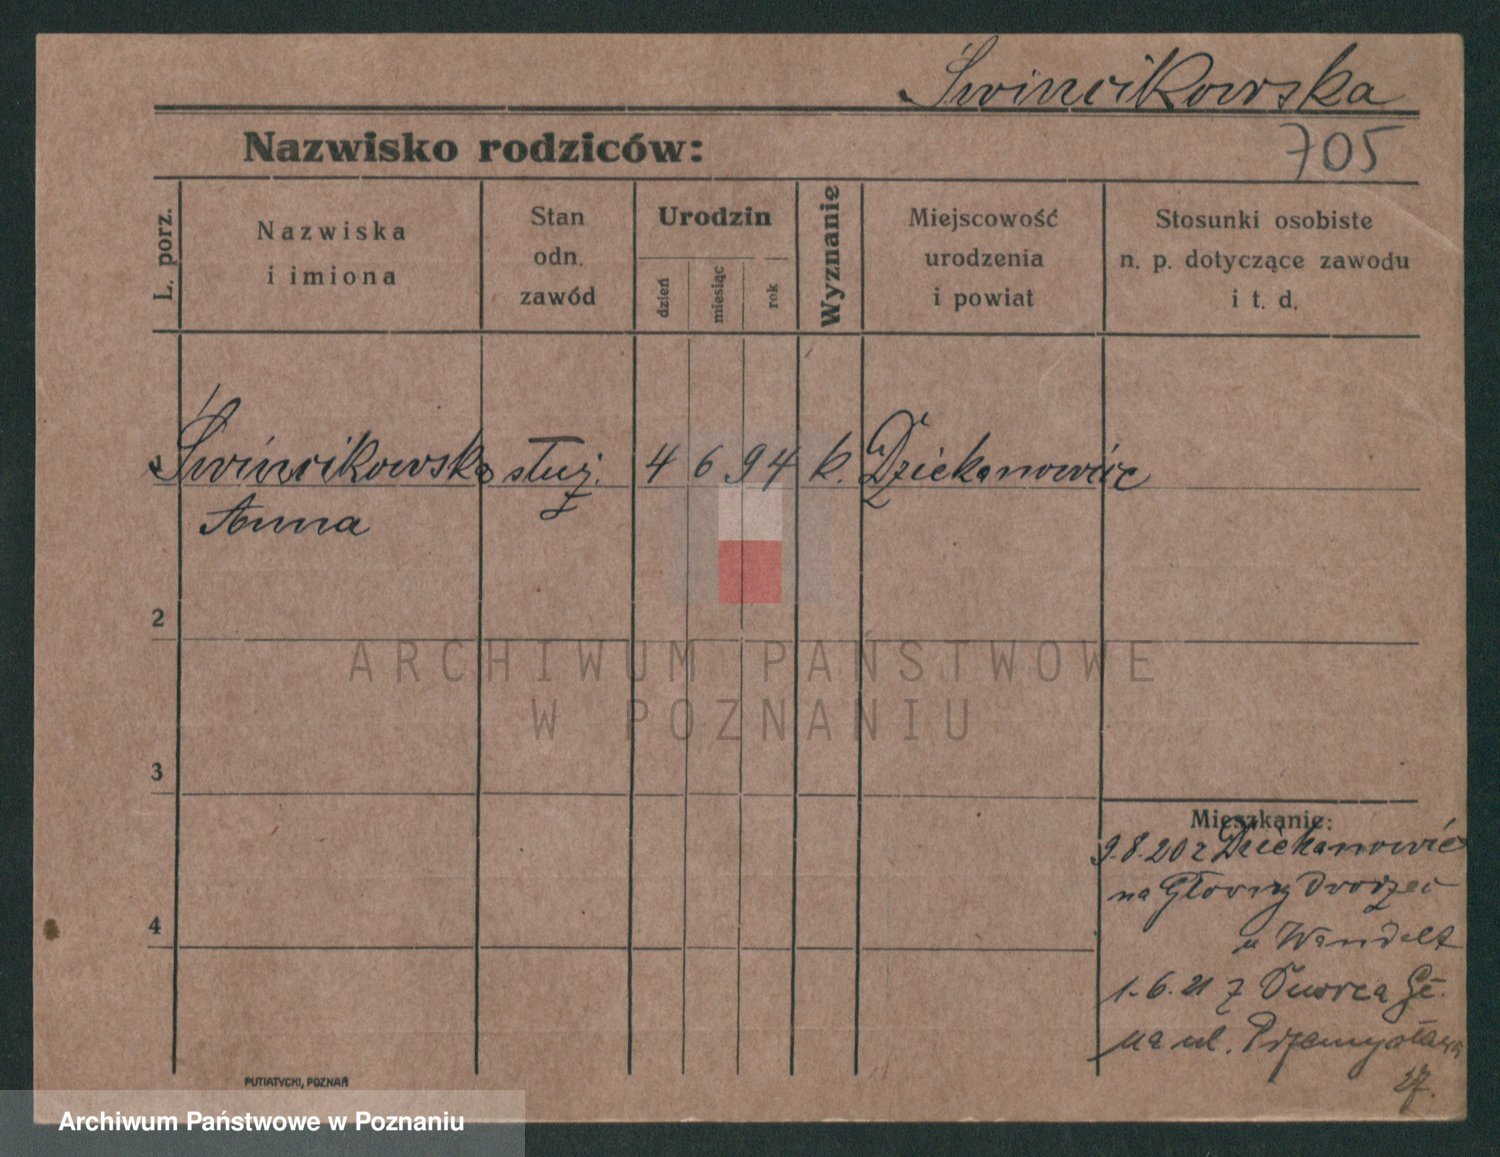 Świncikowska
Nazwisko rodziców:
705
L. porz.
Nazwiska
i imiona
Stan
odn.
zawód
Urodzin
dzień
miesiąc
rok
Wyznanie
Miejscowość
urodzenia
i powiat
Stosunki osobiste
n. p. dotyczące zawodu
i t. d.
Świncikowska służ. 4 6 94 k. Dziekanowic
Anna
2
ARCHIWUM PAŃSTWOWE
W POZNANIU
3
Mieszkanie:
9.8.20 z Dziekanowic
na Główny Dworzec
u Wandelt
4
1.6.21 z Dworca Gł.
na ul. Przemysława
27.
PUTIATYCKI, POZNAŃ
Archiwum Państwowe w Poznaniu